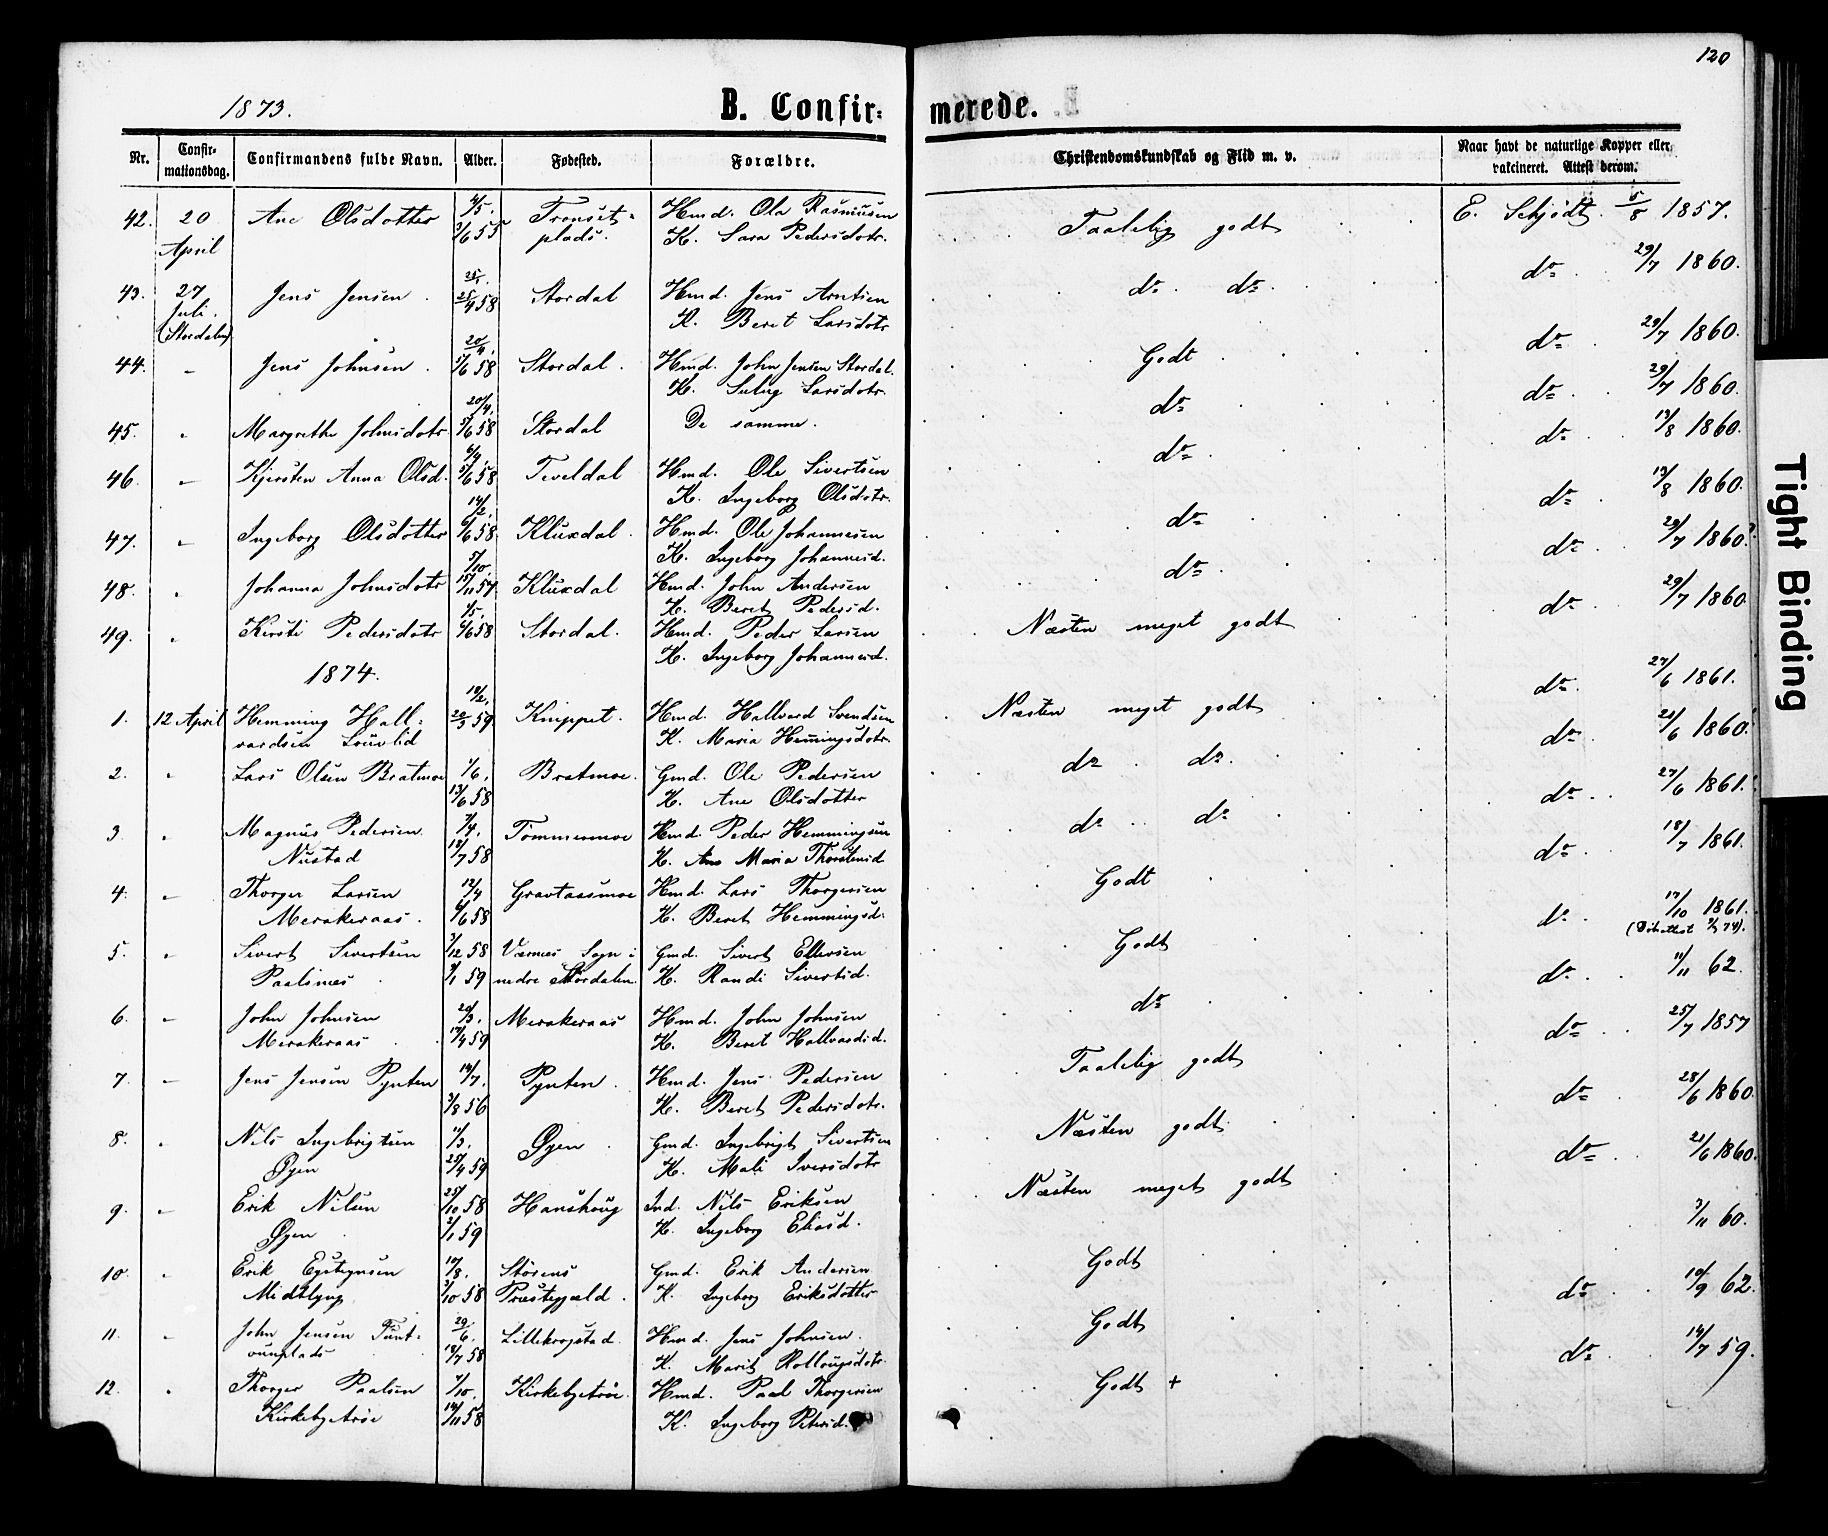 120
1873. B. Confirmerede.
Nr. Confirmationsdag. Confirmandens fulde Navn. Alder. Fødested. Forældre. Christendomskundskab og Flid m. v. Naar havt de naturlige Kopper eller vakcineret. Attest derom.
42. 20 April Ane Olsdotter 4/5. 3/6 55 Tronset- plads. Hmd. Ola Rasmusen K. Sara Pedersdotr. Taalelig godt E. Schjødt. 5/8 1857.
43. 27 Juli. (Stordalen) Jens Jensen. 25/4 58 Stordal Hmd. Jens Arntsen K. Beret Larsdotr do. do. do. 29/7 1860.
44. - Jens Johnsen. 20/4. 5/6 58 Stordal. Hmd. John Jensen Stordal. K. Larsdotr. Godt do 29/7 1860.
45. " Margrethe Johnsdotr 20/4. 5/6 58 Stordal De samme. do do 29/7 1860.
46. - Kjersten Anna Olsd. 6/4. 5/6 58 Teveldal Hmd. Ole Sivertsen K. Ingeborg Olsdotr. do do 13/8 1860.
47. - Ingeborg Olsdotter 14/2. 6/6 58. Kluxdal. Hmd. Ole Johannesen K. Ingeborg Johannesd. do do 13/8 1860.
48. " Johanna Johnsdotr 5/10. 15/11 57. Kluxdal Hmd. John Andersen K. Beret Pedersd. do do 29/7 1860.
49. " Kirsti Pedersdotr 1/5. 6/6 58 Stordal. Hmd. Peder Larsen K. Ingeborg Johannesd. Næsten meget godt do 29/7 1860
1874.
1. 12 April Hemming Hallvardsen Louvlid 18/2. 20/3 59 Knippet. Hmd. Hallvard Svendsen K. Maria Hemingsdotr. Næsten meget godt do. 27/6 1861.
2. " Lars Olsen Bratmoe 1/6. 13/6 58 Bratmoe. Gmd. Ole Pedersen K. Ane Olsdotter do. do. do. 21/6 1860.
3. " Magnus Pedersen Nustad 7/4. 18/7 58 Tømmermoe Hmd. Peder Hemmingsen K. Ane Maria Thorstensd do. do do. 27/6 1861.
4. - Thorger Larsen Merakeraas. 12/4 6/6 58 Gravtaasmoe Hmd. Lars Thorgersen K. Beret Hemmingsd. Godt do. 18/7 1861.
5. " Sivert Sivertsen Paalsnæs 3/12 58 1/1 59 Værnes Sogn i nedre Stordalen. Gmd. Sivert Ellevsen K. Randi Sivertsd. Godt do. 17/10 1861.
6. - John Johnsen Merakeraas 20/3. 17/4 59 Merakeraas Hmd. John Johnsen K. Beret Hallvardsd. do do. 11/11 62.
7. - Jens Jensen Pynten 14/7. 3/8 56 Pynten. Hmd. Jens Pedersen K. Beret Pedersdotr. Taalelig godt do 25/7 1857
8. " Nils Ingebrigtsen Øyen 11/3. 25/4 59 Øyen. Gmd. Ingebrigt Sivertsen K. Mali Iversdotr Næsten godt. do. 28/6 1860.
9. - Erik Nilsen Øyen 25/10 58 2/1 59 Hanshoug Ind. Nils Eriksen K. Ingeborg Eliasd. Næsten meget godt do 21/6 1860.
10. " Erik Eysteynsen Midtlyng 10/8. 3/10 58 Størens Præstegjæld. Gmd. Erik Andersen K. Ingeborg Eriksdotter Godt 3/11 60.
11. " John Jensen 29/6. 18/7 58 Lillekrogstad. Hmd. Jens Johnsen. K. Marit Rollougsdotr. Godt do. 10/9 62.
12. " Thorger Paalsen Kirkebytrøe 7/10. 14/11 58 Kirkebytrøe. Hmd. Paal Thorgersen K. Ingeborg Petersd. Godt + do. 14/7 59.
Tight Binding